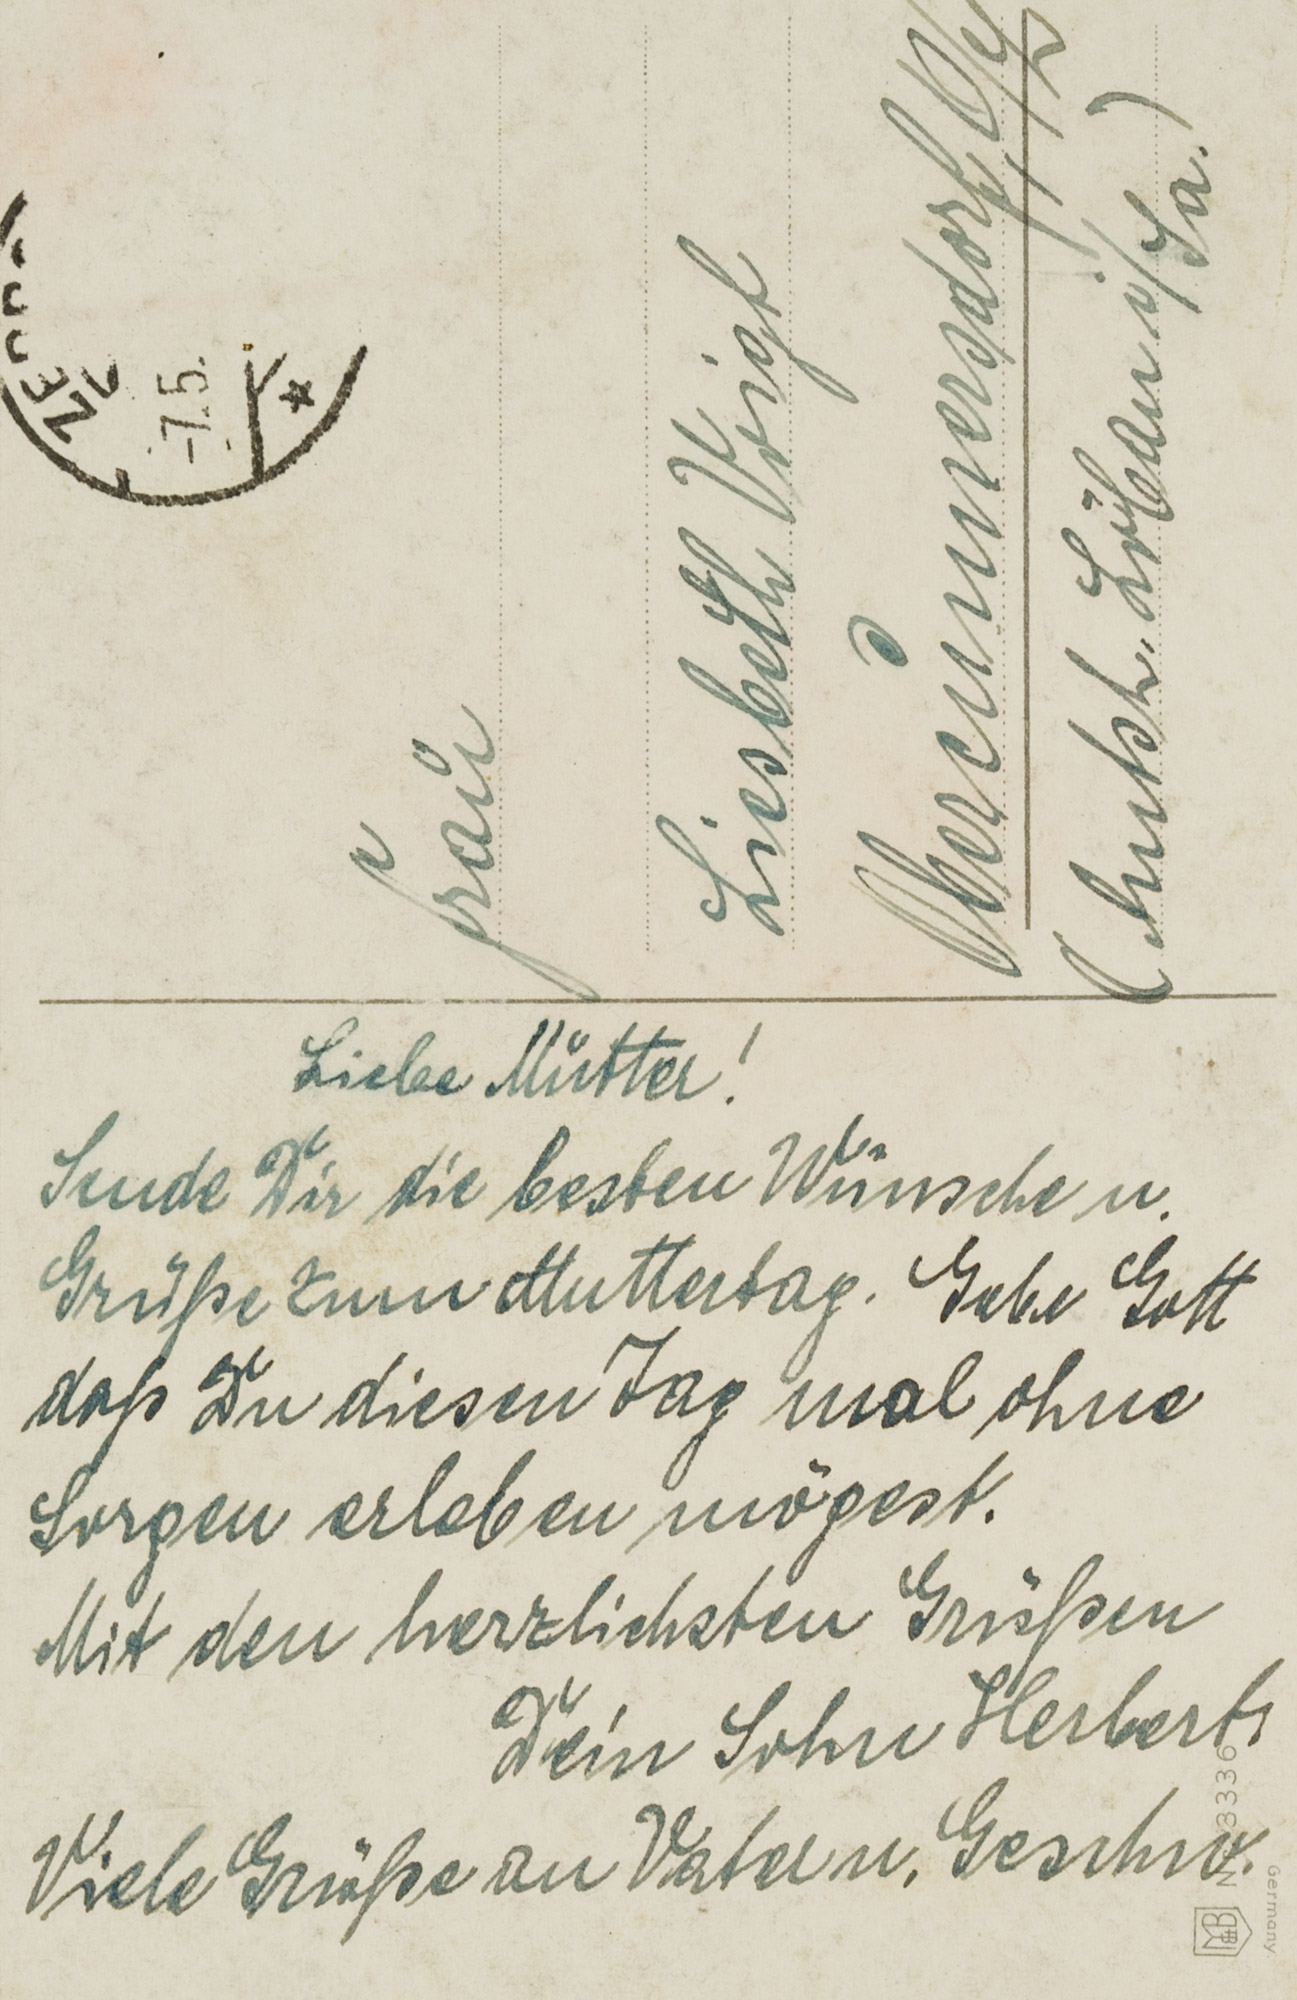 Liebe Mutter!
Sende Dir die besten Wünsche u.
Grüße zum Muttertag. Gebe Gott
daß Du diesen Tag mal ohne
Sorgen erleben mögest.
Mit den herzlichsten Grüßen
Dein Sohn Herbert
Viele Grüße an Vater u. Geschw.
Frau
Liesbeth Voigt
Obercunnersdorf,
(Amtsh. Löbau i/Sa.)
-7.5.
Nr. 3336
Germany